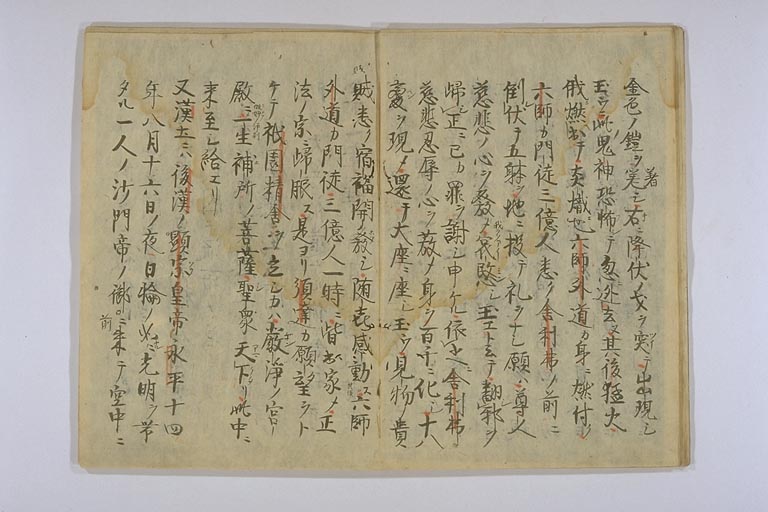 金色ノ鎧ヲ著シ右ニ降伏ノ戈ヲ突テ出現シ
玉ヲ此鬼神恐怖テ忽逃去ヌ其後猛火
俄燃出テ炎熾也六師外道カ身ニ燃付ク
六師カ門徒三億人悉ク舎利弗ノ前ニ
倒伏テ五躰ヲ地ニ投テ礼ヲナシ願ハ尊者
慈悲ノ心ヲ發メ哀愍シ玉エト云テ翻邪ヲ
帰正ニ己カ罪ヲ謝シ申ケル依之舎利弗
慈悲忍辱ノ心ヲ發メ身ヲ百千ニ化シ十八
変ヲ現メ還テ大座ニ座シ玉ヲ見物ノ貴
賎悉ク宿福開發シ随喜感動ス六師
外道カ門徒三億人一時ニ皆出家メ正
法ノ宗帰服ス是ヨリ須達カ願望ヲト
ケテ祇園精舎ヲ立シカハ嚴浄ノ宮
殿ニ一生補所ノ菩薩聖衆天下リ此中ニ
来至シ給エリ
又漢土ニハ後漢ノ顕宗皇帝永平十四
年八月十六日ノ夜日輪ノ如ニ光明ヲ帯
タル一人ノ沙門帝ノ御前ニ来テ空中ニ